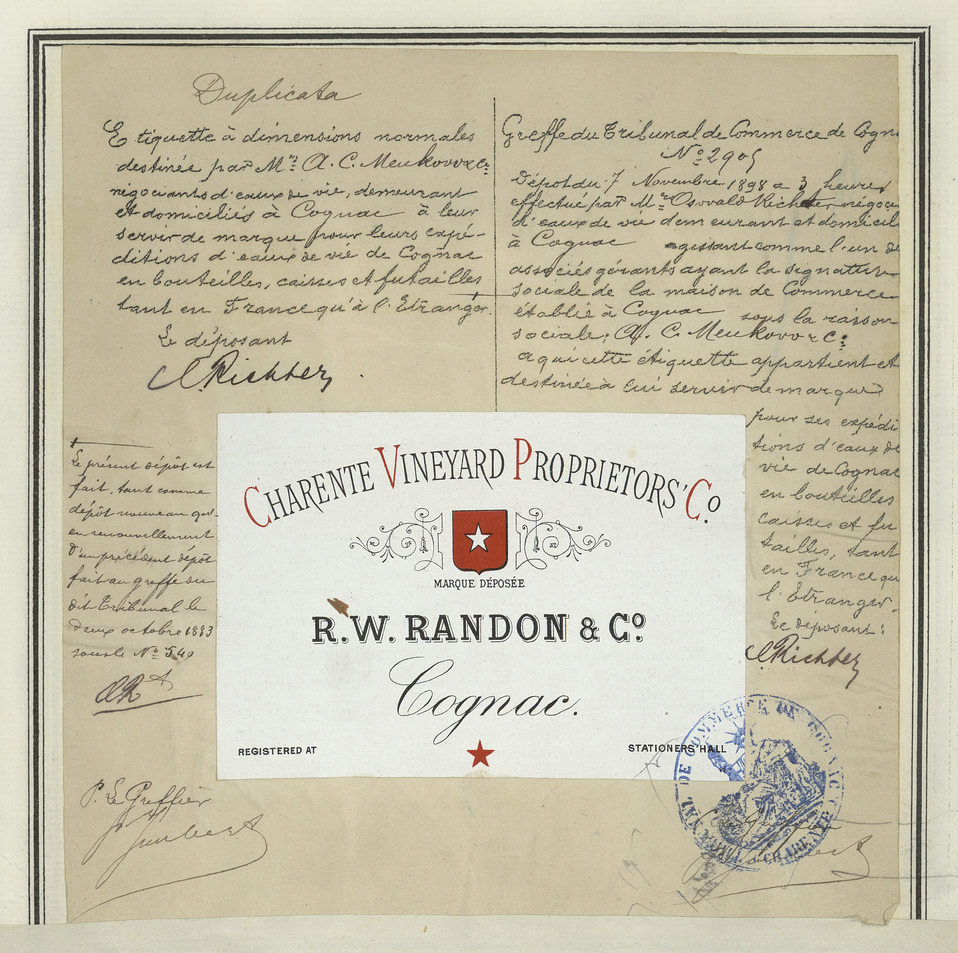 Duplicata
Etiquette à dimensions normales
destinée par Mrs A. C. Meukow & Cie
négociants d'eaux de vie, demeurant
et domiciliés à Cognac à leur
servir de marque pour leurs expé-
ditions d'eaux de vie de Cognac
en bouteilles, caisses et futailles
tant en France qu'à l'Etranger.
Le déposant
Richter
Le présent dépôt est
fait, tant comme
dépôt nouveau qu'
en renouvellement
d'un précédent dépôt
fait au greffe du
dit Tribunal le
deux octobre 1883
sous le No 540
P. Le Greffier
Greffe du Tribunal de Commerce de Cogn
No 2905
Dépôt du 7 Novembre 1898 a 3 heures
effectué par Mr Oswald Richter négoci
d'eaux de vie demeurant et domicil
à Cognac agissant comme l'un de
associés gérants ayant la signature
sociale de la maison de Commerce
établie à Cognac sous la raison
sociale; A. C. Meukow & Cie
a qui cette étiquette appartient et
destinée à lui servir de marque
pour ses expédi
tions d'eaux de
vie de Cognac
en bouteilles
caisses et fu
tailles, tant
en France qu
l'Etranger.
Le déposant:
Richter
CHARENTE VINEYARD PROPRIETORS' Co.
MARQUE DÉPOSÉE
R. W. RANDON & Co.
Cognac.
REGISTERED AT
STATIONERS' HALL
TRIBUNAL DE COMMERCE DE COGNAC
CHARENTE